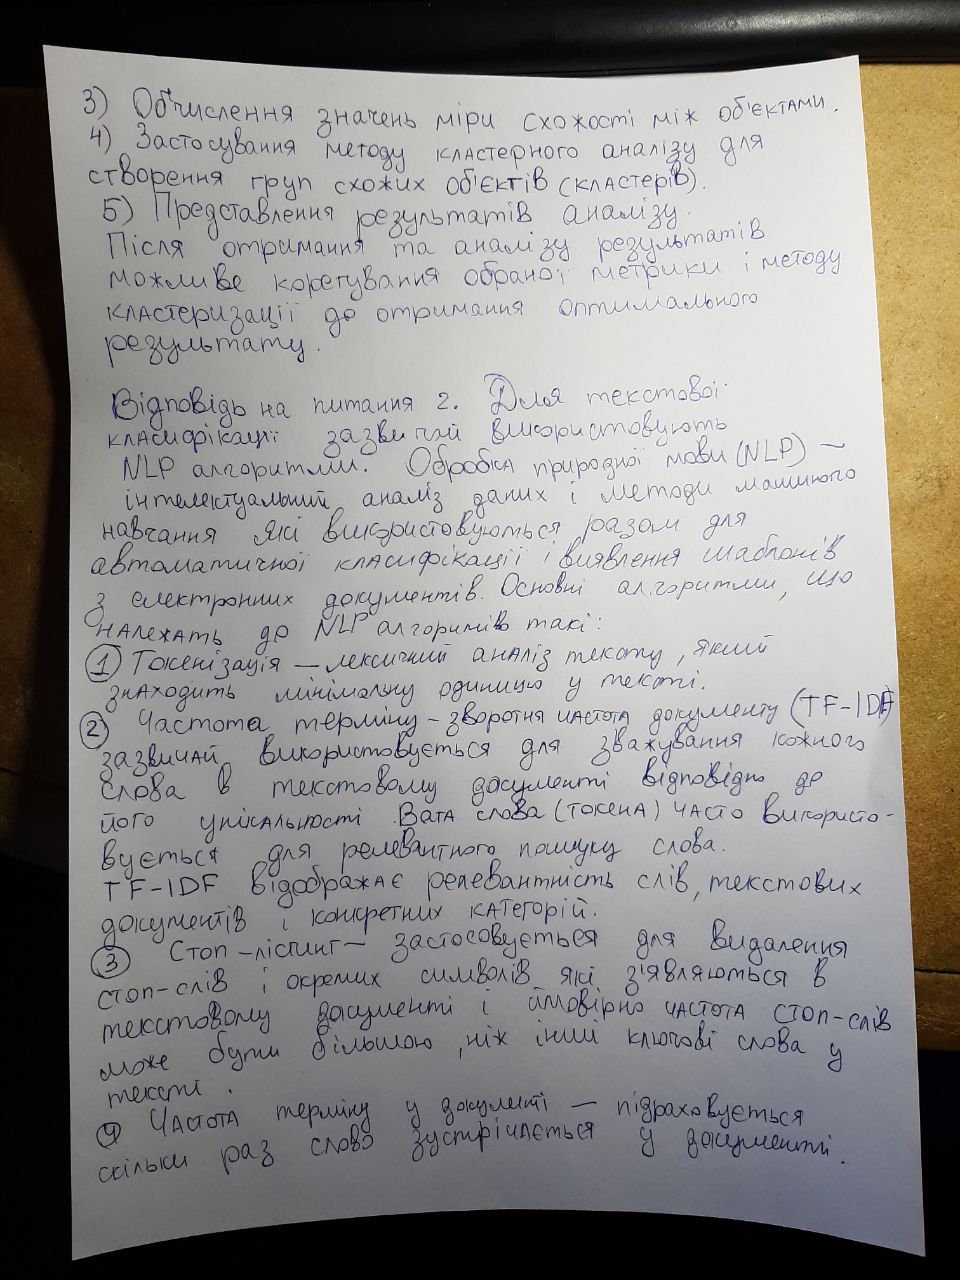 3) Обчислення значень міри схожості між об'єктами.
4) Застосування методу кластерного аналізу для
створення груп схожих об'єктів (кластерів).
5) Представлення результатів аналізу.
Після отримання та аналізу результатів
можливе корегування обраної метрики і методу
кластеризації до отримання оптимального
результату.
Відповідь на питання 2. Для текстової
класифікації зазвичай використовують
NLP алгоритми. Обробка природної мови (NLP) –
інтелектуальний аналіз даних і методи машиного
навчання які використовуються разом для
автоматичної класифікації і виявлення шаблонів
з електронних документів. Основні алгоритми, що
належать до NLP алгоримів такі:
1 Токенізація – лексичний аналіз тексту, який
знаходить мінімальну одиницю у тексті.
2 Частота терміну – зворотня частота документу (TF-IDF)
зазвичай використовується для зважування кожного
слова в текстовому документі відповідно до
його унікальності. Вага слова (токена) часто використо-
вується для релевантного пошуку слова.
TF-IDF відображає релевантність слів, текстових
документів і конкретних категорій.
3 Стоп-лістинг – застосовується для видалення
стоп-слів і окремих символів які з'являються в
текстовому документі і ймовірно частота стоп-слів
може бути більшою, ніж інші ключові слова у
тексті.
4 Частота терміну у документі – підраховується
скільки раз слово зустрічається у документі.